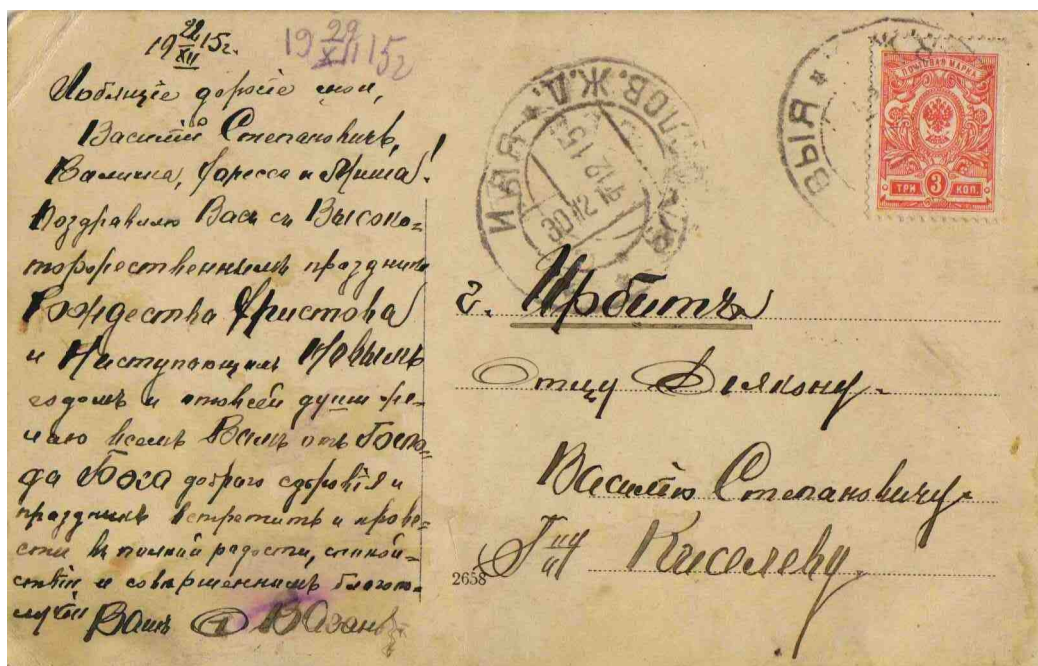 19 22/XII 15г.
19 29/XII 15г
дорогие мои,
Василій Степановичъ,
и Миша!
Поздравляю Васъ съ Высоко=
торжественнымъ праздник
Рождества Христова
и Наступающимъ Новымъ
годомъ и отъ всей души же-
лаю всемъ Вамъ отъ Госпо=
да Бога добраго здоровія и
праздникъ встретить и прове=
сти въ полной радости, спокой=
ствіи и совершенномъ благопо-
лучіи
Вашъ
ВЫЯ
ПОЧТОВАЯ МАРКА
ТРИ 3 КОП.
30 12 15
г. Ирбитъ
Отцу Діякону
Василію Степановичу
Г-ну Киселеву.
2658